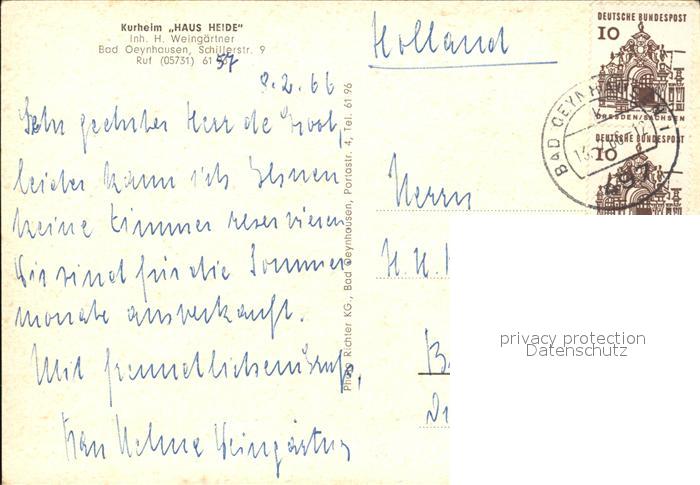 Kurheim „HAUS HEIDE"
Inh. H. Weingärtner
Bad Oeynhausen, Schillerstr. 9
Ruf (05731) 61 57
Holland
8.2.66
Sehr geehrter Herr de Groot,
leider kann ich Ihnen
keine Zimmer reservieren
Wir sind für die Sommer
monate ausverkauft.
Mit freundlichem Gruß,
Frau Helma Weingärtner
Photo Richter KG., Bad Oeynhausen, Portastr. 4, Tel. 61 96
Herrn
H. H.
DEUTSCHE BUNDESPOST
10
DRESDEN/SACHSEN
DEUTSCHE BUNDESPOST
10
BAD OEYNHAUSEN 1
497
privacy protection
Datenschutz